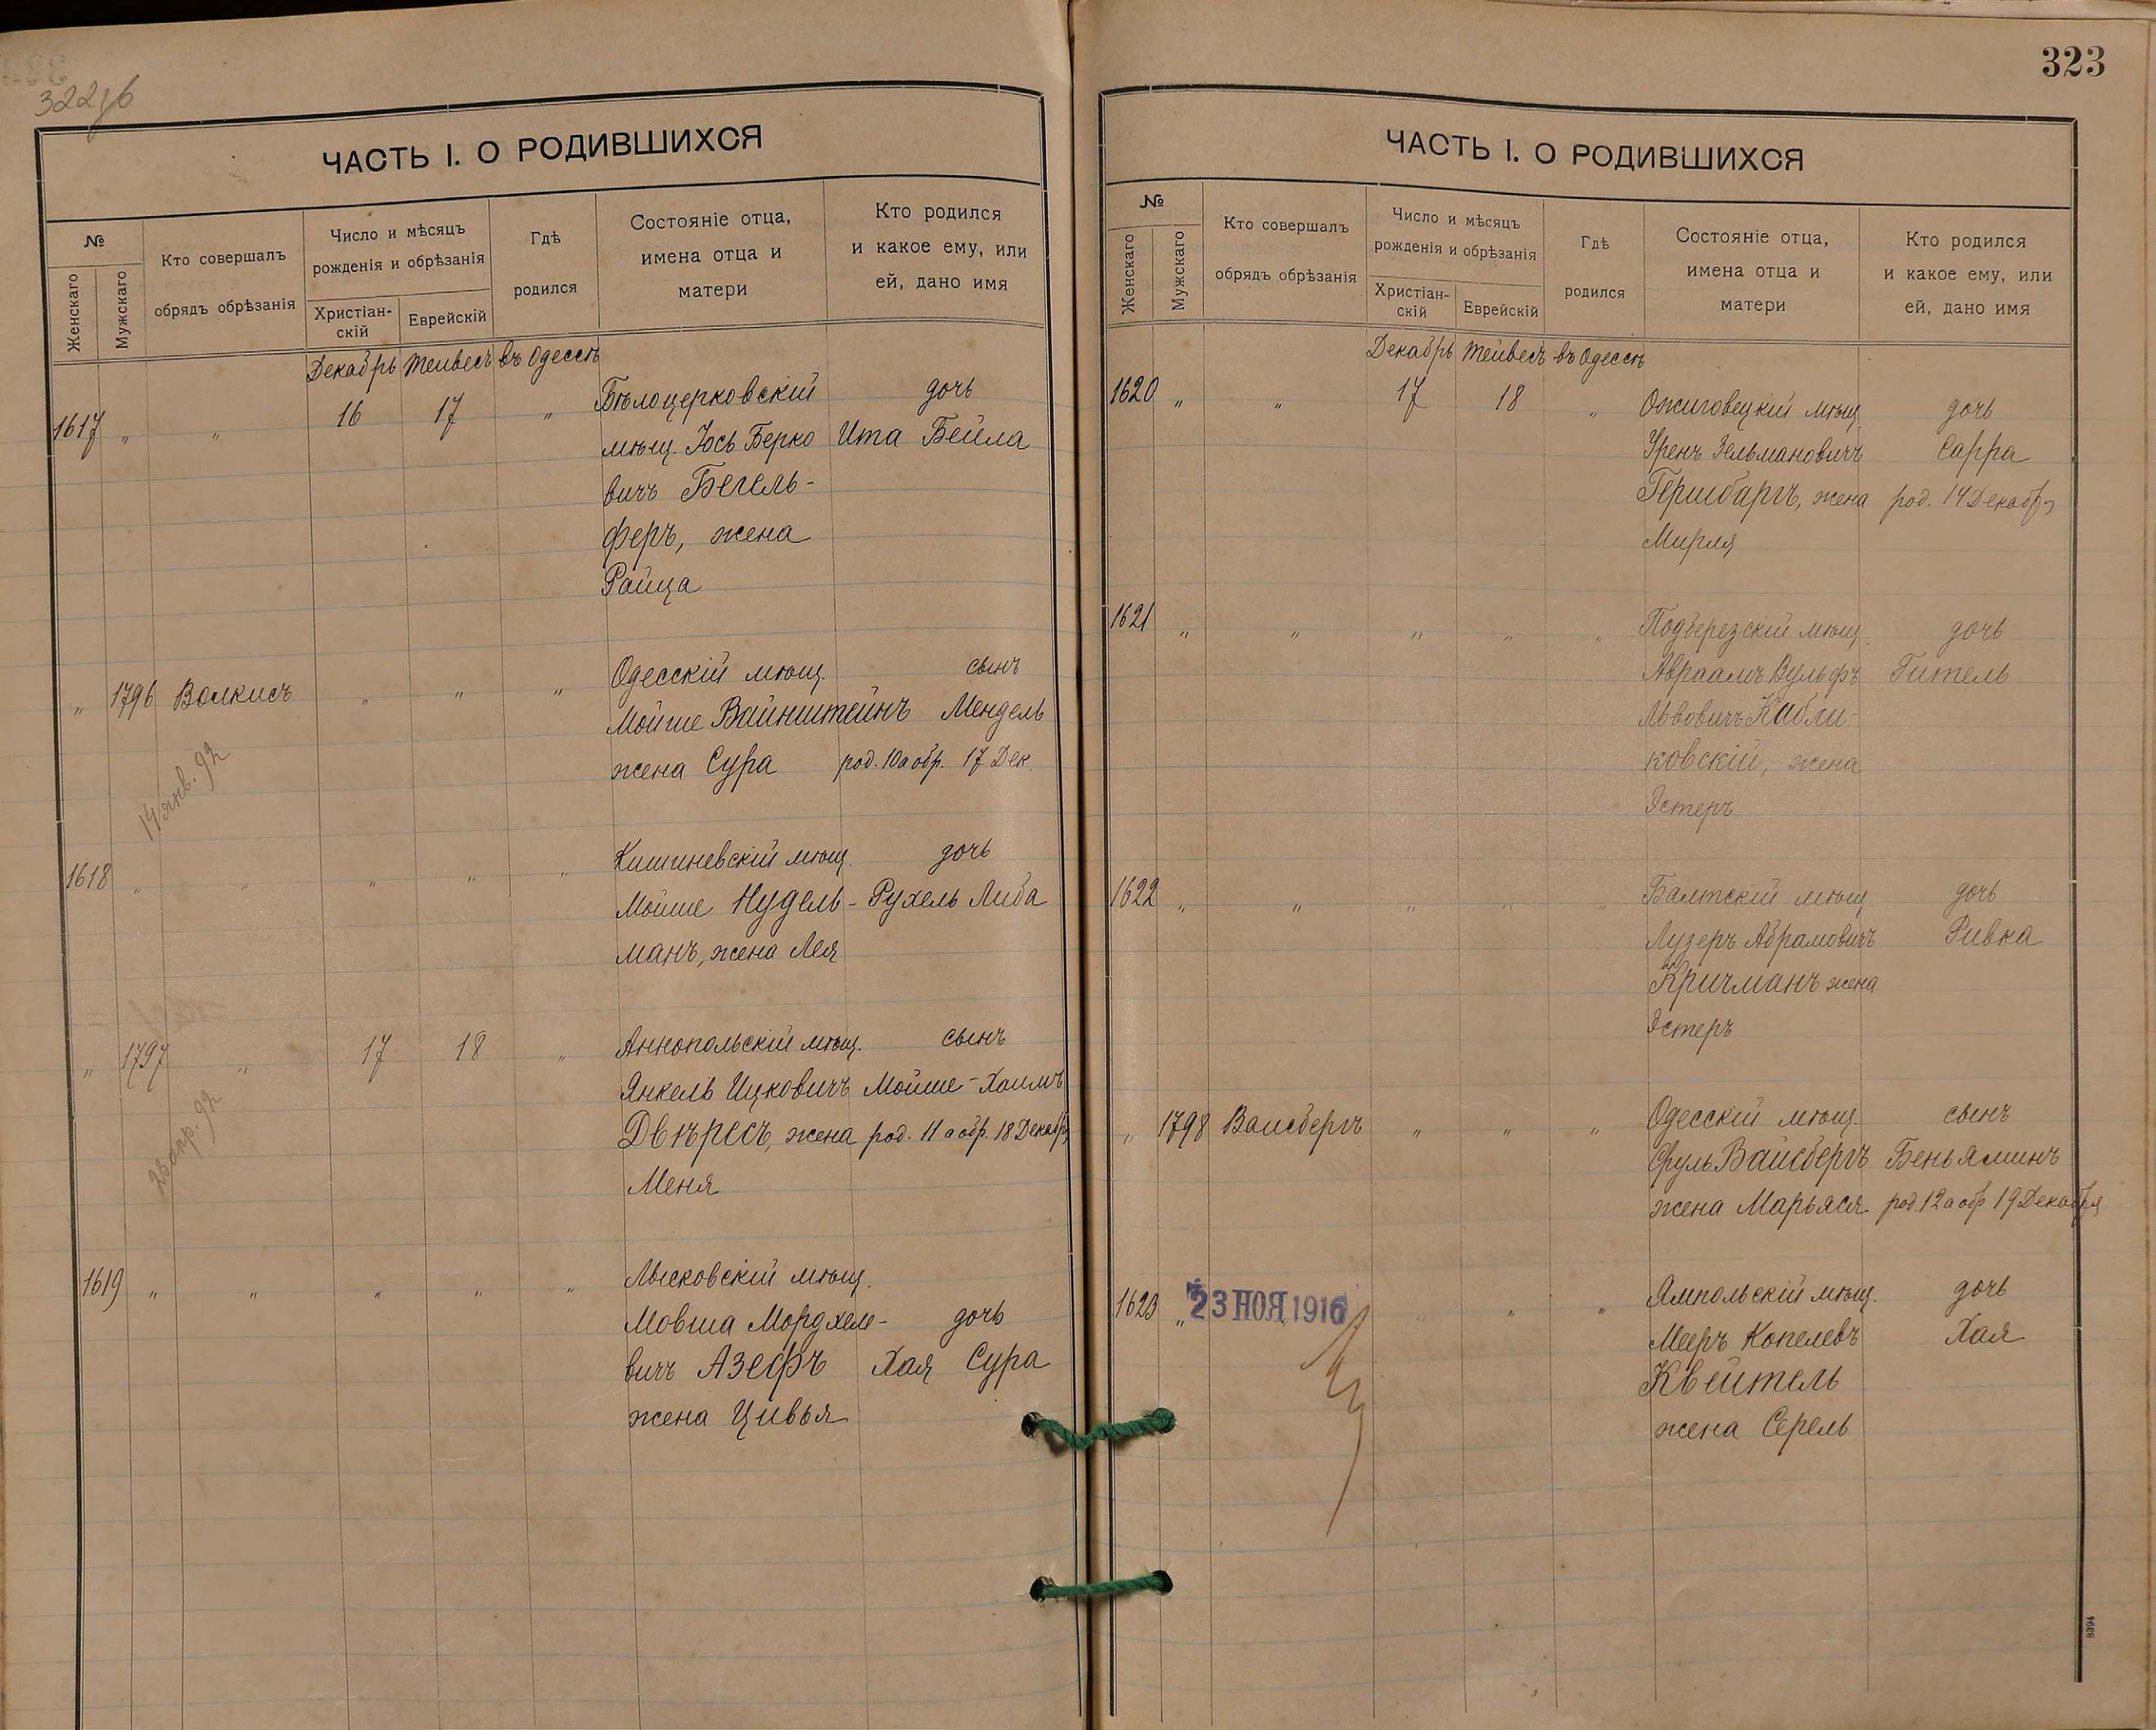 322об
ЧАСТЬ I. О РОДИВШИХСЯ
№
Женскаго
Мужскаго
Кто совершалъ
обрядъ обрѣзанія
Число и мѣсяцъ
рожденія и обрѣзанія
Христіан-
скій
Еврейскій
Гдѣ
родился
Состояніе отца,
имена отца и
матери
Кто родился
и какое ему, или
ей, дано имя
Декабрь Тейвесъ въ Одессѣ
1617 „ „ 16 17 „ Бѣлоцерковскій дочь
мѣщ. Іось Берко Ита Бейла
вичъ Бегель-
феръ, жена
Райца
„ 1796 Волкисъ „ „ „ Одесскій мѣщ. сынъ
Мойше Вайнштейнъ Мендель
жена Сура род. 10 а обр. 17 Дек.
14 янв. 92
1618 „ „ „ „ „ Кишиневскій мѣщ. дочь
Мойше Нудель- Рухель Либа
манъ, жена Лея
„ 1797 „ 17 18 „ Аннопольскій мѣщ. сынъ
Янкель Ицковичъ Мойше-Хаимъ
Двѣресъ, жена род. 11 а обр. 18 Декабр
Меня
23 апр. 92
1619 „ „ „ „ „ Лысковскій мѣщ.
Мовша Мордхеле- дочь
вичъ Азефъ Хая Сура
жена Цивья
323
ЧАСТЬ I. О РОДИВШИХСЯ
№
Женскаго
Мужскаго
Кто совершалъ
обрядъ обрѣзанія
Число и мѣсяцъ
рожденія и обрѣзанія
Христіан-
скій
Еврейскій
Гдѣ
родился
Состояніе отца,
имена отца и
матери
Кто родился
и какое ему, или
ей, дано имя
Декабрь Тейвесъ въ Одессѣ
1620 „ „ 17 18 „ Ожиговецкій мѣщ. дочь
Уренъ Зельмановичъ Сарра
Гершбаргъ, жена род. 14 Декабр
Мирля
1621 „ „ „ „ „ Подберезскій мѣщ. дочь
Авраамъ Вульфъ Гитель
Львовичъ Кабли-
ковскій, жена
Эстеръ
1622 „ „ „ „ „ Балтскій мѣщ. дочь
Лузеръ Абрамовичъ Ривка
Кричманъ жена
Эстеръ
„ 1798 Ваисбергъ „ „ „ Одесскій мѣщ. сынъ
Сруль Вайсбергъ Беньяминъ
жена Марьяся род. 12 а обр 19 Декабря
1623 „ 23 НОЯ 1916 „ „ „ Ямпольскій мѣщ. дочь
Мееръ Копелевъ Хая
Квейтель
жена Серель
8394